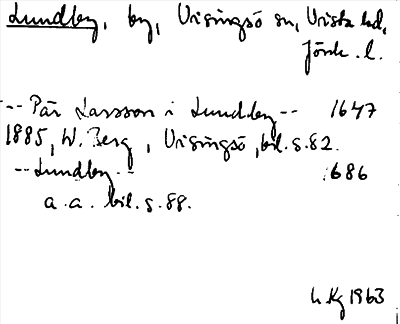 Lundby, by, Visingsö sn, Vista hd,
Jönk. l.
-- Pär Larsson i Lundby -- 1647
1885, W. Berg, Visingsö, bil. s. 82.
-- Lundby -- 1686
a. a. bil. s. 88.
Kg 1963